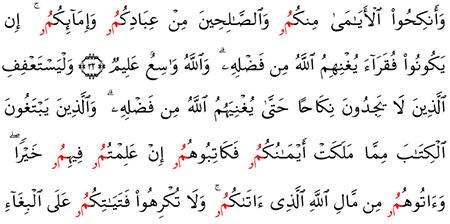 وَأَنكِحُوا۟ ٱلۡأَيَٰمَىٰ مِنكُمُۥ وَٱلصَّٰلِحِينَ مِنۡ عِبَادِكُمُۥ وَإِمَآئِكُمُۥۚ إِن
يَكُونُوا۟ فُقَرَآءَ يُغۡنِهِمُ ٱللَّهُ مِن فَضۡلِهِۦۗ وَٱللَّهُ وَٰسِعٌ عَلِيمٞ ٣٢ وَلۡيَسۡتَعۡفِفِ
ٱلَّذِينَ لَا يَجِدُونَ نِكَاحًا حَتَّىٰ يُغۡنِيَهُمُ ٱللَّهُ مِن فَضۡلِهِۦۗ وَٱلَّذِينَ يَبۡتَغُونَ
ٱلۡكِتَٰبَ مِمَّا مَلَكَتۡ أَيۡمَٰنُكُمُۥ فَكَاتِبُوهُمُۥ إِنۡ عَلِمۡتُمُۥ فِيهِمُۥ خَيۡرٗاۖ
وَءَاتُوهُمُۥ مِن مَّالِ ٱللَّهِ ٱلَّذِىٓ ءَاتَىٰكُمُۥۚ وَلَا تُكۡرِهُوا۟ فَتَيَٰتِكُمُۥ عَلَى ٱلۡبِغَآءِ